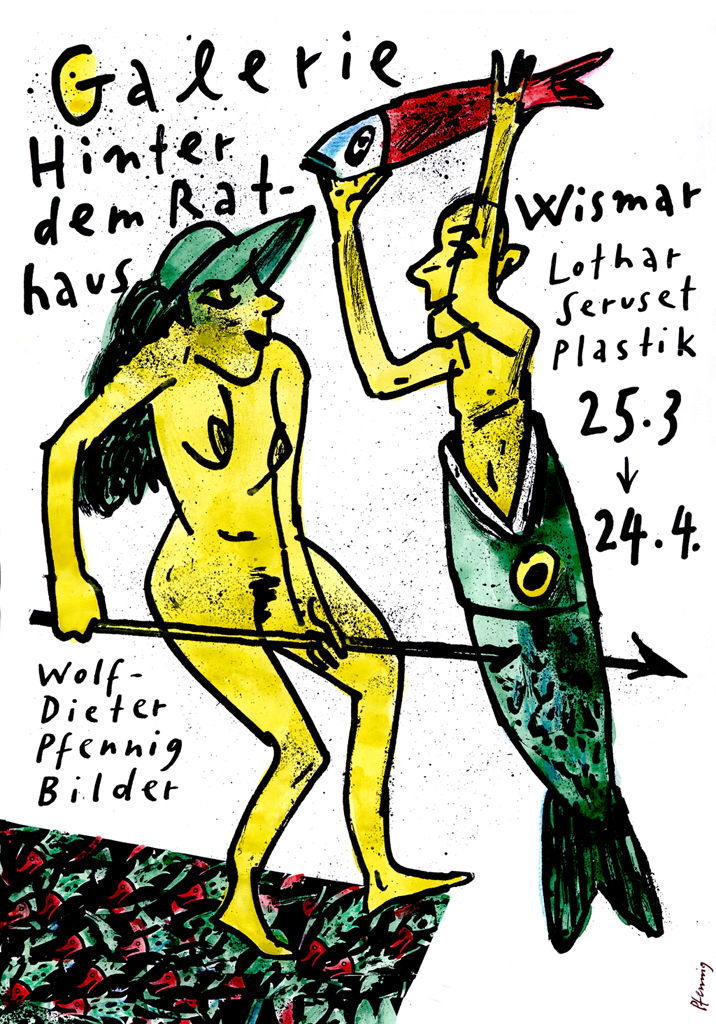 Galerie
Hinter
dem Rat-
haus
Wismar
Lothar
Seruset
Plastik
25.3
↓
24.4.
Wolf-
Dieter
Pfennig
Bilder
Pfennig